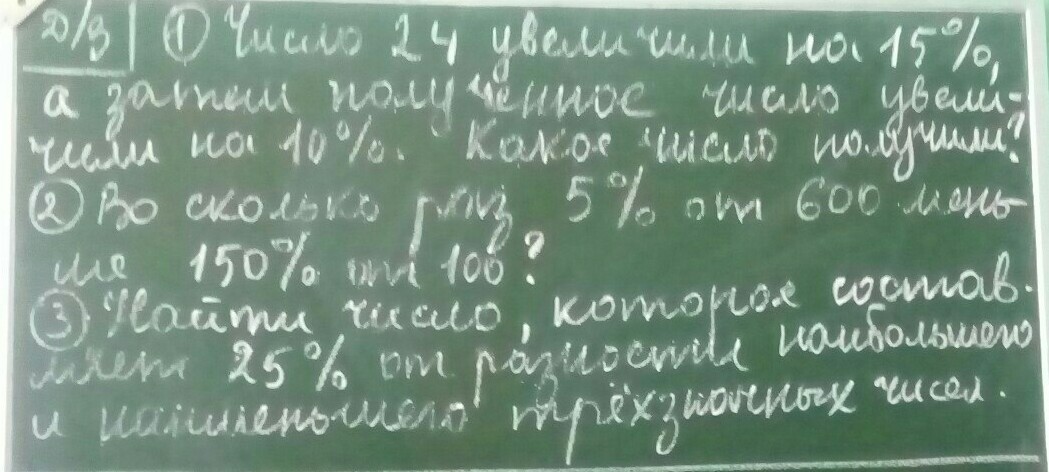 Д/з ① Число 24 увеличили на 15%,
а затем полученное число увели-
чили на 10%. Какое число получили?
② Во сколько раз 5% от 600 мень-
ше 150% от 100?
③ Найти число, которое состав-
ляет 25% от разности наибольшего
и наименьшего трёхзначных чисел.